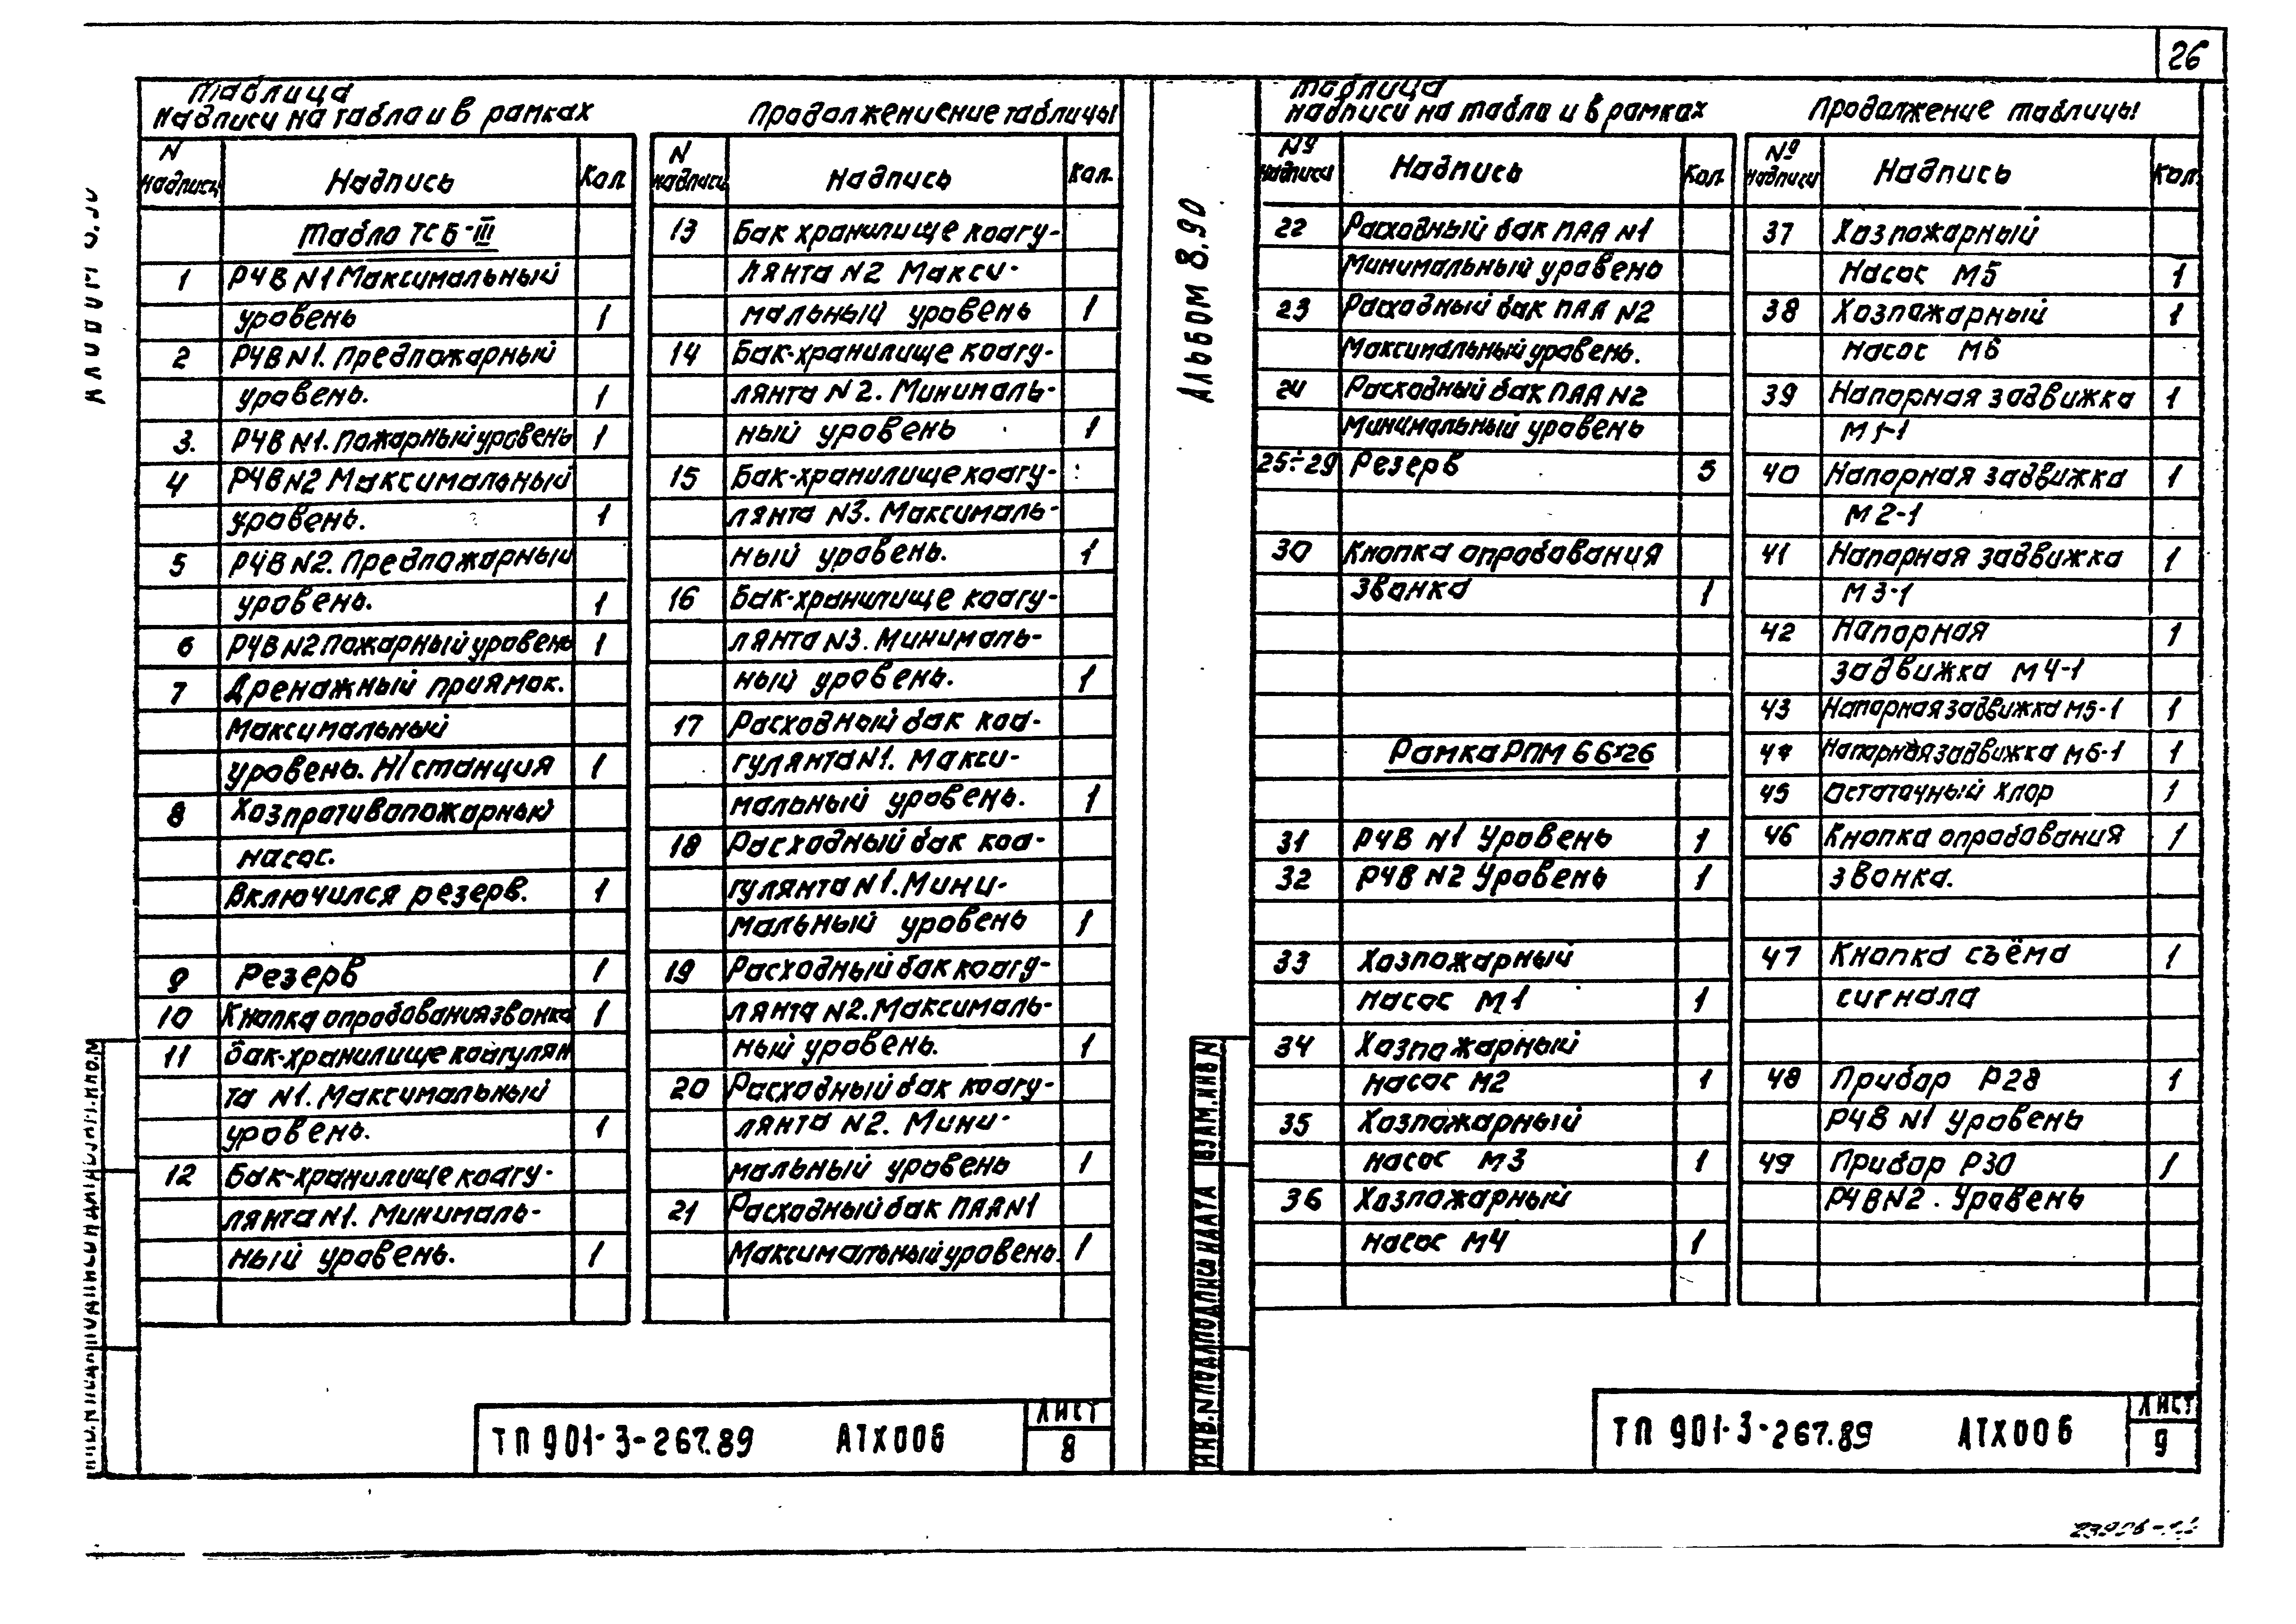 26
Таблица
Надписи на табло и в рамках
Продолжениение таблицы
N надписи Надпись Кол.
Табло ТСБ-III
1 РЧВ N1 Максимальный
уровень 1
2 РЧВ N1. Предпожарный
уровень. 1
3. РЧВ N1. Пожарный уровень 1
4 РЧВ N2 Максимальный
уровень. 1
5 РЧВ N2. Предпожарный
уровень. 1
6 РЧВ N2 Пожарный уровень 1
7 Дренажный приямок.
Максимальный
уровень. Н/станция 1
8 Хозпративопожарный
насос.
Включился резерв. 1
9 Резерв 1
10 Кнопка опробования звонка 1
11 Бак-хранилище коагулян
та N1. Максимальный
уровень. 1
12 Бак-хранилище коагу-
лянта N1. Минималь-
ный уровень. 1
N надписи Надпись Кол.
13 Бак хранилище коагу-
лянта N2 Макси-
мальный уровень 1
14 Бак-хранилище коагу-
лянта N2. Минималь-
ный уровень 1
15 Бак-хранилище коагу-
лянта N3. Максималь-
ный уровень. 1
16 Бак-хранилище коагу-
лянта N3. Минималь-
ный уровень. 1
17 Расходный бак коа-
гулянта N1. Макси-
мальный уровень. 1
18 Расходный бак коа-
гулянта N1. Мини-
мальный уровень 1
19 Расходный бак коагу-
лянта N2. Максималь-
ный уровень. 1
20 Расходный бак коагу-
лянта N2. Мини-
мальный уровень 1
21 Расходный бак ПАА N1
Максимальный уровень. 1
ТП 901-3-267.89 АТХ006 ЛИСТ 8
Альбом 8.90
Таблица
надписи на табло и в рамках
Продолжение таблицы
№ надписи Надпись Кол.
22 Расходный бак ПАА N1
Минимальный уровень
23 Расходный бак ПАА N2
Максимальный уровень.
24 Расходный бак ПАА N2
Минимальный уровень
25÷29 Резерв 5
30 Кнопка опробования
звонка 1
Рамка РПМ 66х26
31 РЧВ N1 Уровень 1
32 РЧВ N2 Уровень 1
33 Хозпожарный
насос М1 1
34 Хозпожарный
насос М2 1
35 Хозпожарный
насос М3 1
36 Хозпожарный
насос М4 1
№ надписи Надпись Кол.
37 Хозпожарный
Насос М5 1
38 Хозпожарный 1
насос М6
39 Напорная задвижка 1
М1-1
40 Напорная задвижка 1
М2-1
41 Напорная задвижка 1
М3-1
42 Напорная 1
задвижка М4-1
43 Напорная задвижка М5-1 1
44 Напорная задвижка М6-1 1
45 Остаточный хлор 1
46 Кнопка опробования 1
звонка.
47 Кнопка съёма 1
сигнала
48 Прибор Р28 1
РЧВ N1 Уровень
49 Прибор Р30 1
РЧВ N2. Уровень
ИНВ.N ПОДЛ ПОДПИСЬ И ДАТА ВЗАМ.ИНВ N
ТП 901-3-267.89 АТХ006 ЛИСТ 9